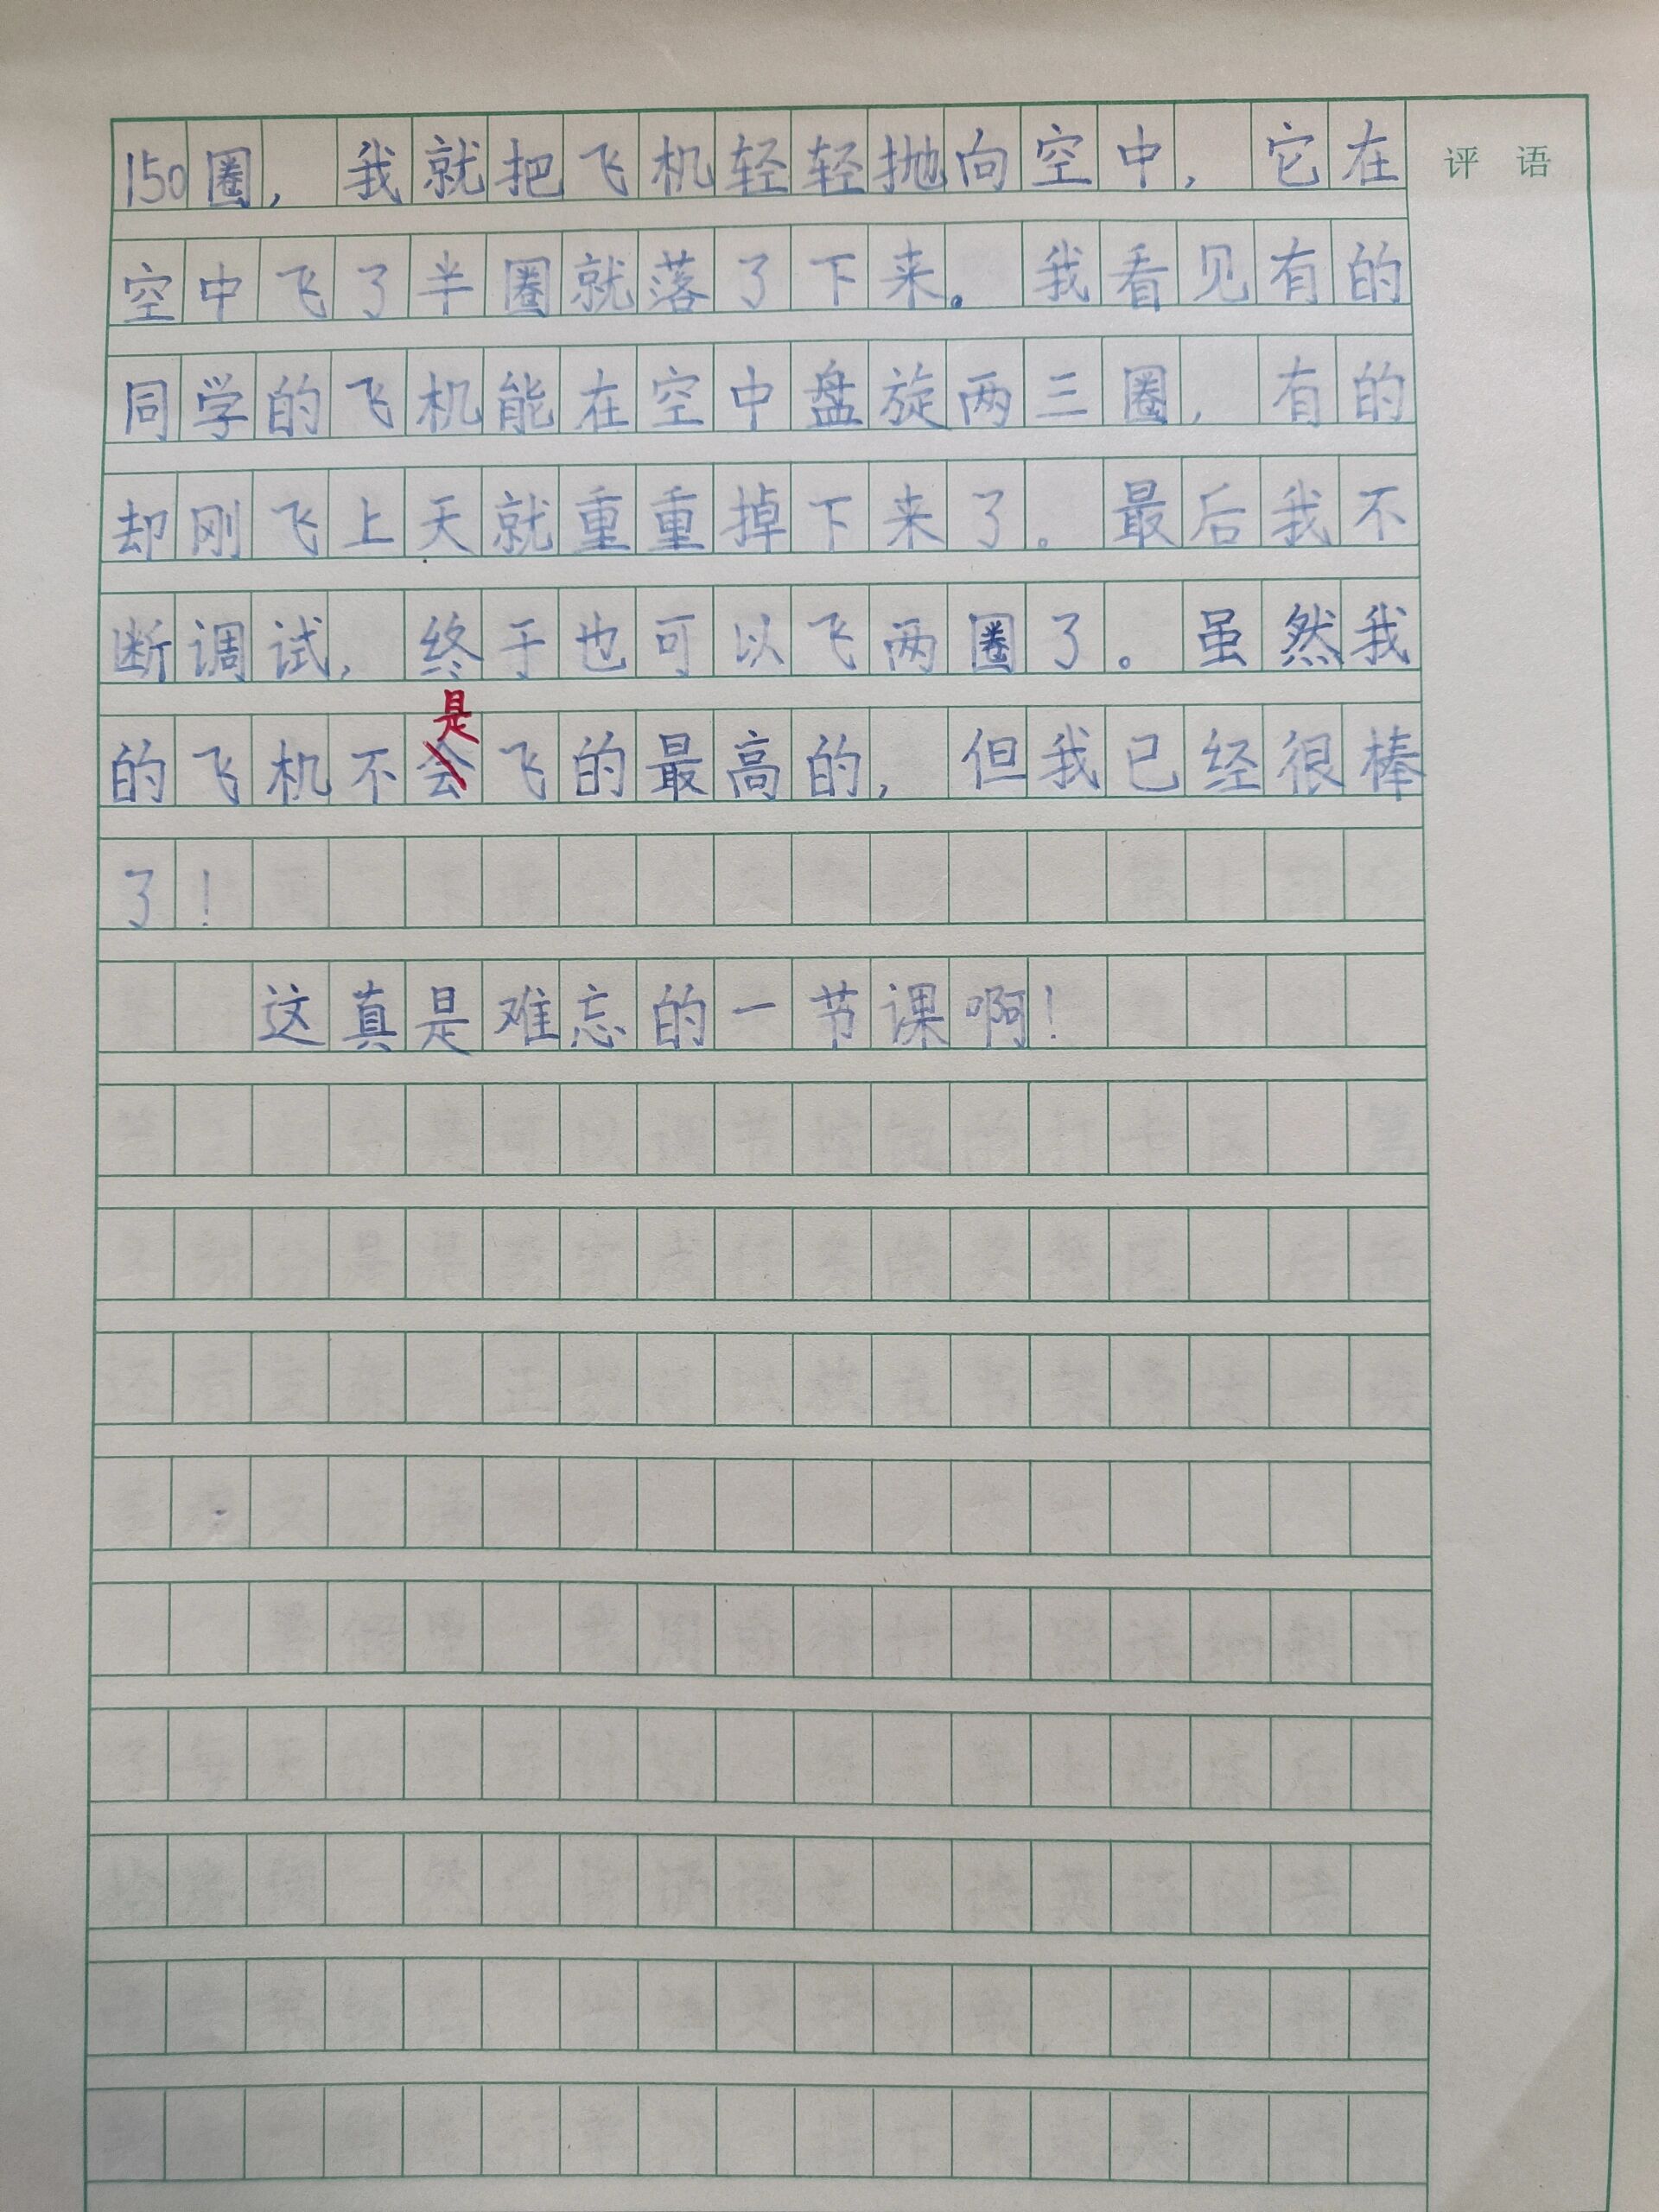 150圈，我就把飞机轻轻抛向空中，它在
评语
空中飞了半圈就落了下来。我看见有的
同学的飞机能在空中盘旋两三圈，有的
却刚飞上天就重重掉下来了。最后我不
断调试，终于也可以飞两圈了。虽然我
是
的飞机不会飞的最高的，但我已经很棒
了！
这真是难忘的一节课啊！